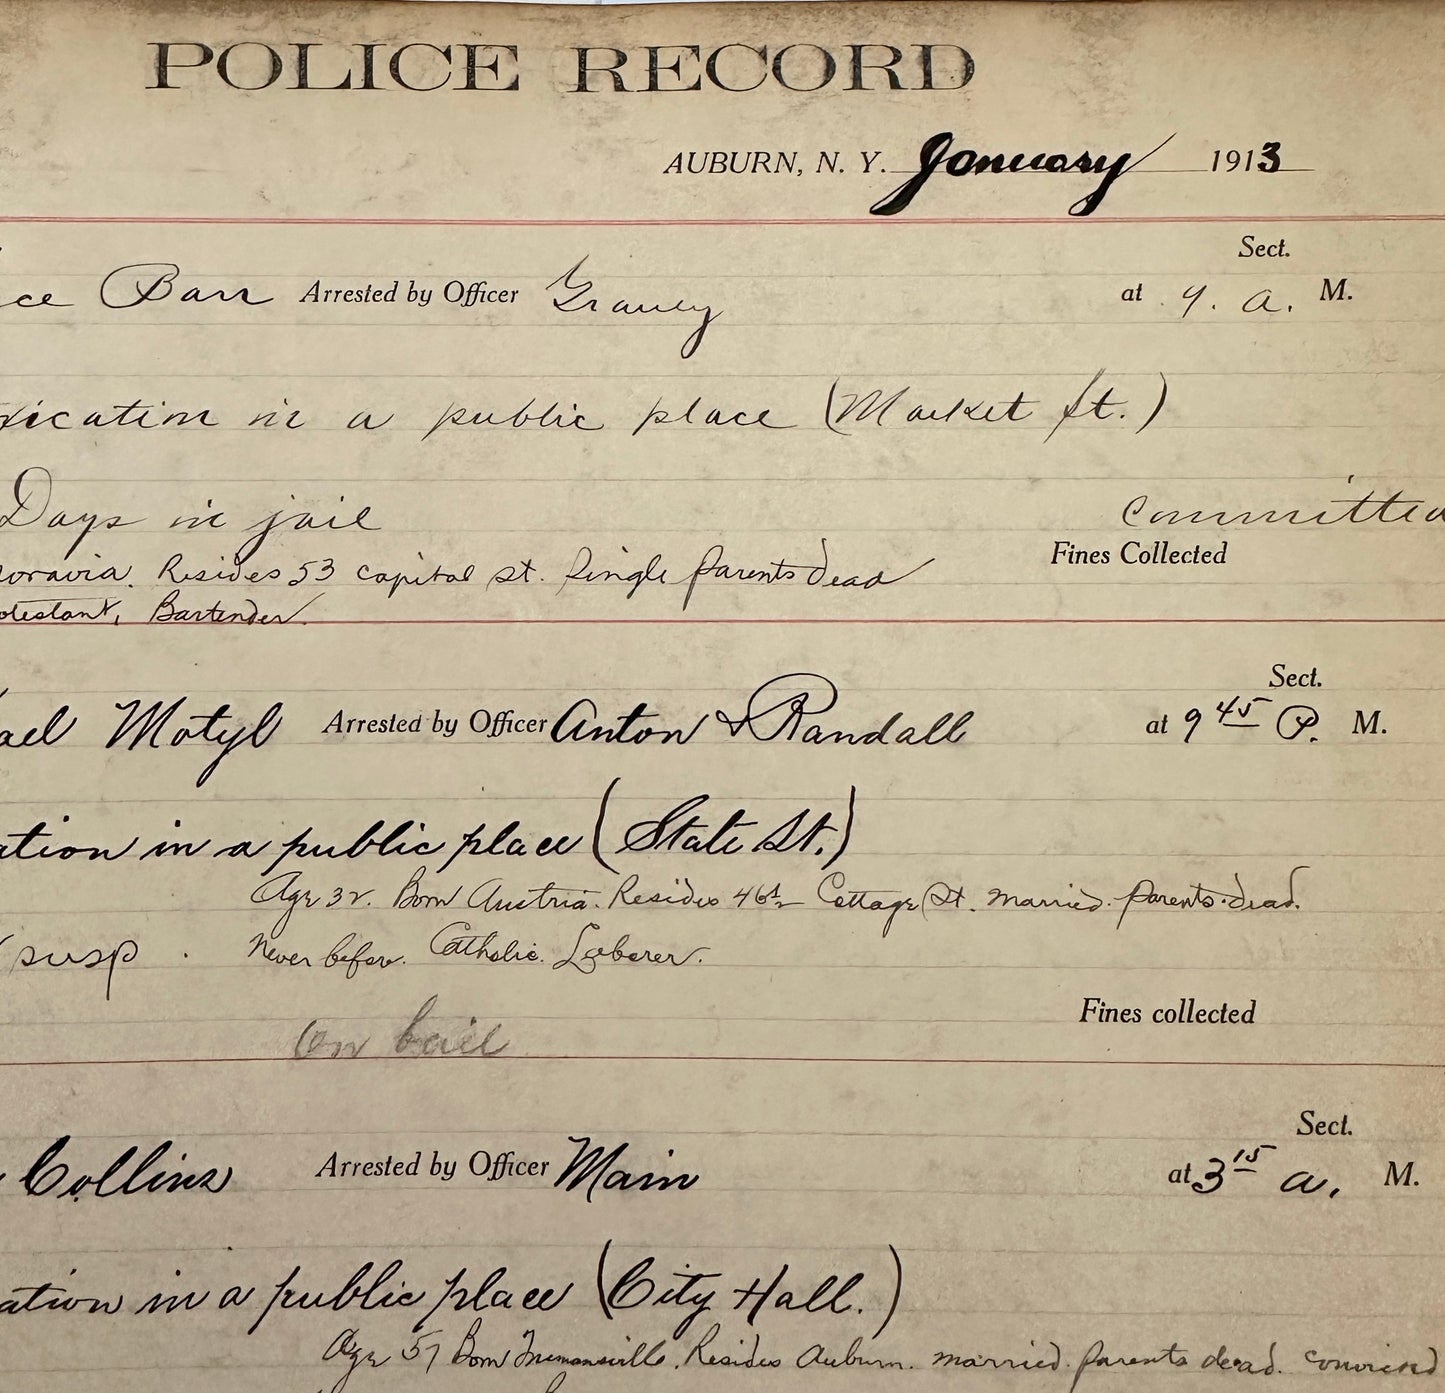 POLICE RECORD
AUBURN, N. Y. January 1913
Sect.
ce Barr Arrested by Officer at 9. a. M.
xication in a public place (Market St.)
Days in jail committed
Fines Collected
oravia. Resides 53 Capital St. Single Parents dead
otestant, Bartender.
Sect.
ael Motyl Arrested by Officer Anton & Randall at 9 45 P. M.
ation in a public place (State St.)
Age 32. Born Austria. Resides 46½ Cottage St. Married. Parents dead.
susp. Never before. Catholic. Laborer.
Fines collected
On bail
Sect.
Collins Arrested by Officer Main at 3 15 a. M.
ation in a public place (City Hall.)
Age 57 Born Resides Auburn. married. Parents dead. convicted